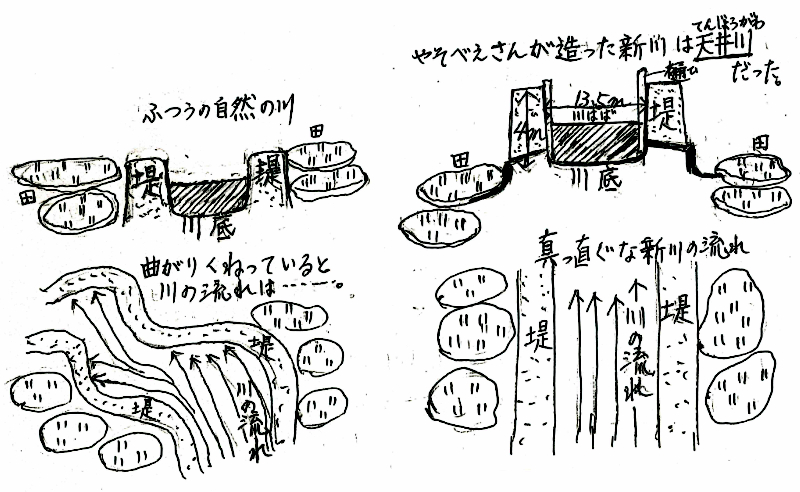 ふつうの自然の川
田
堤
堤
田
川底
曲がりくねっていると
川の流れは………。
堤
堤
川の流れ
てんじょうがわ
やそべえさんが造った新川は天井川
だった。
樋
13.5m
川はば
4m
堤
田
田
川底
真っ直ぐな新川の流れ
堤
堤
川の流れ